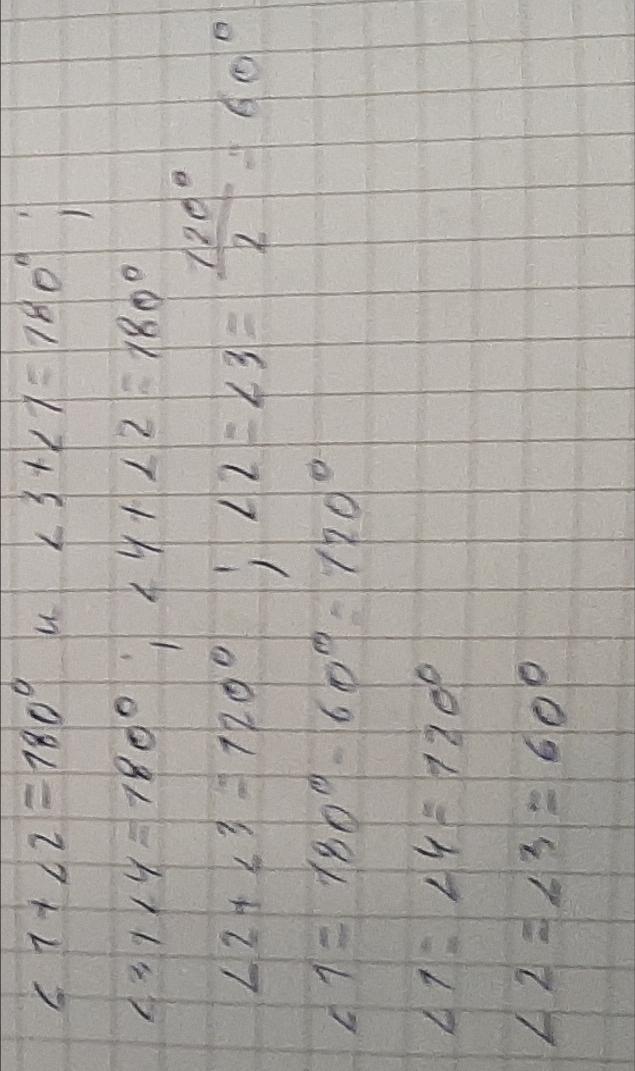 ∠1+∠2=180° и ∠3+∠1=180°;
∠3+∠4=180°; ∠4+∠2=180°
∠2+∠3=120°; ∠2=∠3=120°/2=60°
∠1=180°-60°=120°
∠1=∠4=120°
∠2=∠3=60°